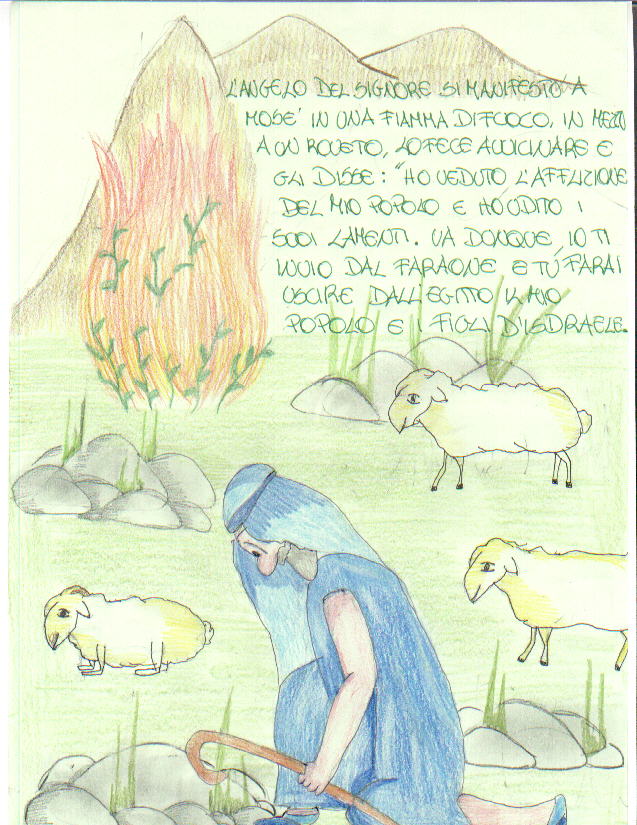 L'ANGELO DEL SIGNORE SI MANIFESTÒ A
MOSE' IN UNA FIAMMA DI FUOCO, IN MEZZO
A UN ROVETO, LO FECE AVVICINARE E
GLI DISSE: "HO VEDUTO L'AFFLIZIONE
DEL MIO POPOLO E HO UDITO I
SUOI LAMENTI. VA DUNQUE, IO TI
INVIO DAL FARAONE, E TU FARAI
USCIRE DALL'EGITTO IL MIO
POPOLO E I FIGLI D'ISDRAELE.